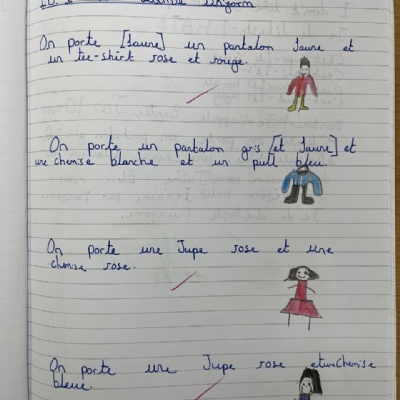 On porte [Jaure] un pantalon Jaure et
un tee-shirt rose et rouge.
On porte un pantalon gris [et Jaure] et
une chemise blanche et un pull bleu.
On porte une Jupe rose et une
chemise rose.
On porte une Jupe rose et une chemise
bleue.